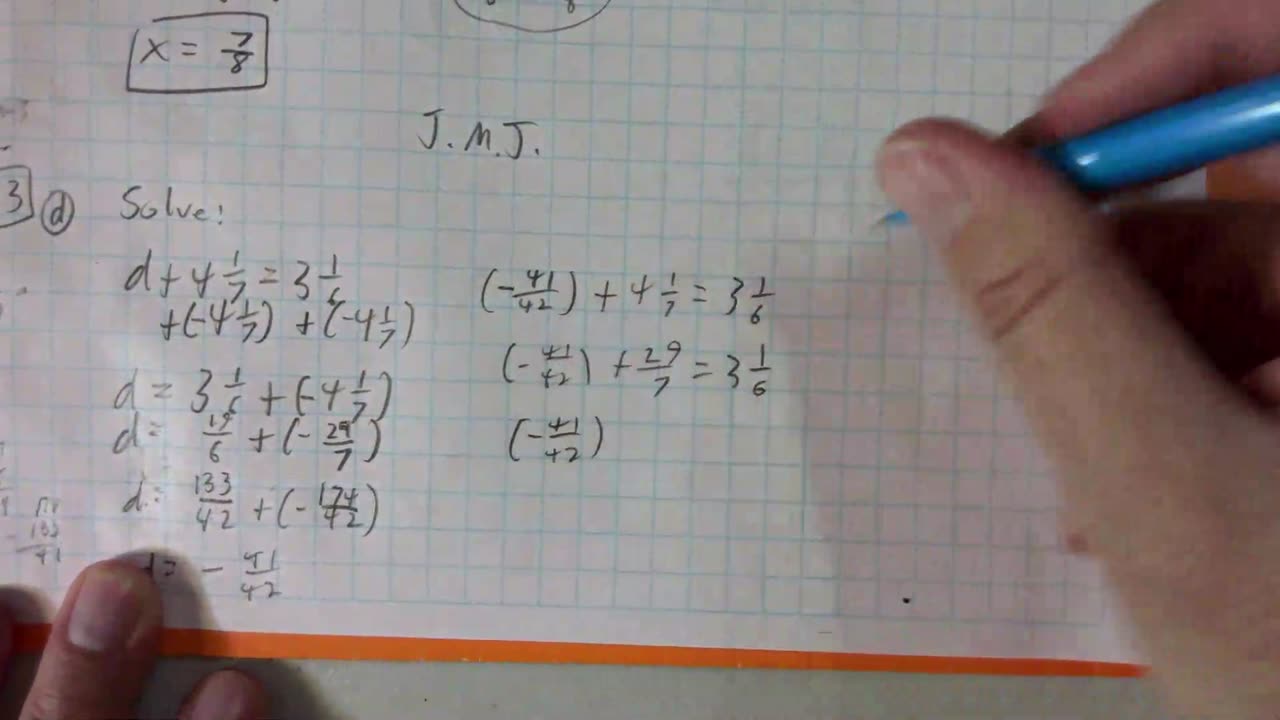 x = 7/8
J.M.J.
3 (d) Solve:
d + 4 1/7 = 3 1/6
+(-4 1/7) +(-4 1/7)
d = 3 1/6 + (-4 1/7)
d = 19/6 + (-29/7)
d = 133/42 + (-174/42)
d = - 41/42
(-41/42) + 4 1/7 = 3 1/6
(-41/42) + 29/7 = 3 1/6
(-41/42)